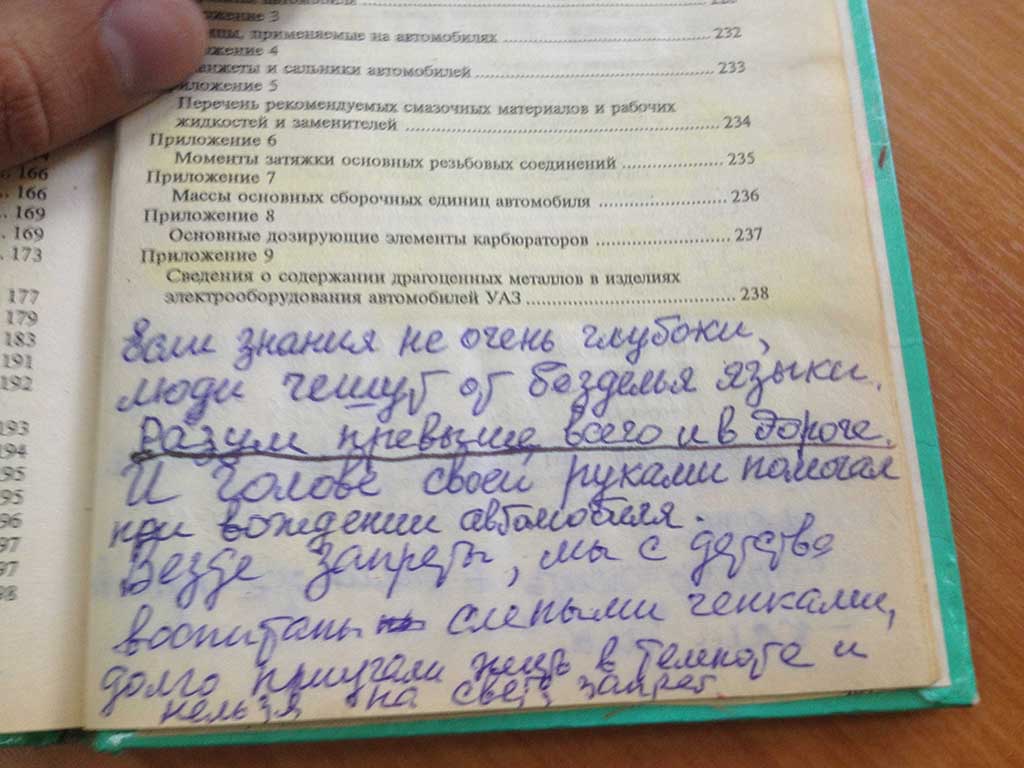 автомобиля
жение 3
применяемые на автомобилях ... 232
жение 4
анжеты и сальники автомобилей ... 233
риложение 5
Перечень рекомендуемых смазочных материалов и рабочих
жидкостей и заменителей ... 234
Приложение 6
Моменты затяжки основных резьбовых соединений ... 235
Приложение 7
Массы основных сборочных единиц автомобиля ... 236
Приложение 8
Основные дозирующие элементы карбюраторов ... 237
Приложение 9
Сведения о содержании драгоценных металлов в изделиях
электрооборудования автомобилей УАЗ ... 238
.. 166
.. 166
.. 169
. 169
. 173
177
179
183
191
192
193
194
195
195
96
97
97
98
знания не очень глубоки,
люди чешут от безделья языки.
Разум превыше всего и в дороге.
И голове своей руками помогал
при вождении автомобиля.
Везде запреты, мы с детства
воспитаны слепыми щенками,
долго приучали жить в темноте и
нельзя на свет запрет